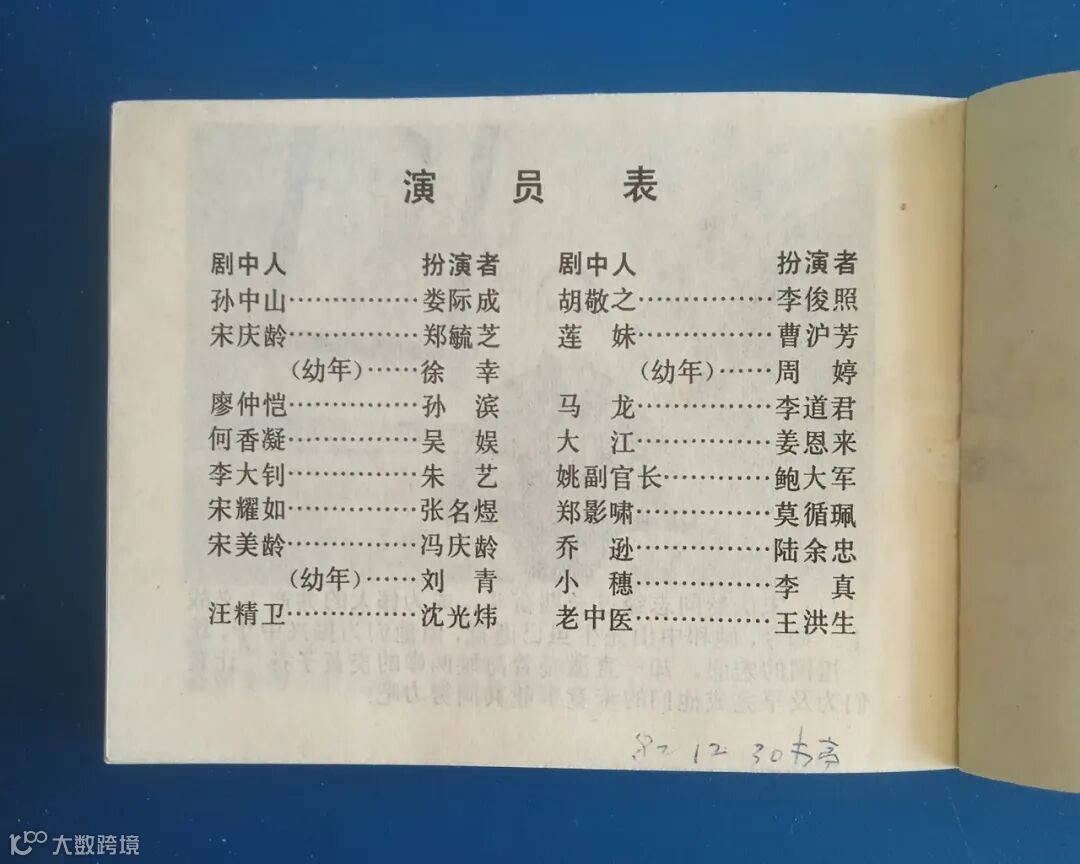 演员表
剧中人 扮演者 剧中人 扮演者
孙中山……………娄际成 胡敬之……………李俊照
宋庆龄……………郑毓芝 莲妹……………曹沪芳
(幼年)……徐幸 (幼年)……周婷
廖仲恺……………孙滨 马龙……………李道君
何香凝……………吴娱 大江……………姜恩来
李大钊……………朱艺 姚副官长…………鲍大军
宋耀如……………张名煜 郑影啸……………莫循珮
宋美龄……………冯庆龄 乔逊……………陆余忠
(幼年)……刘青 小穗……………李真
汪精卫……………沈光炜 老中医……………王洪生
82 12 30
大数跨境